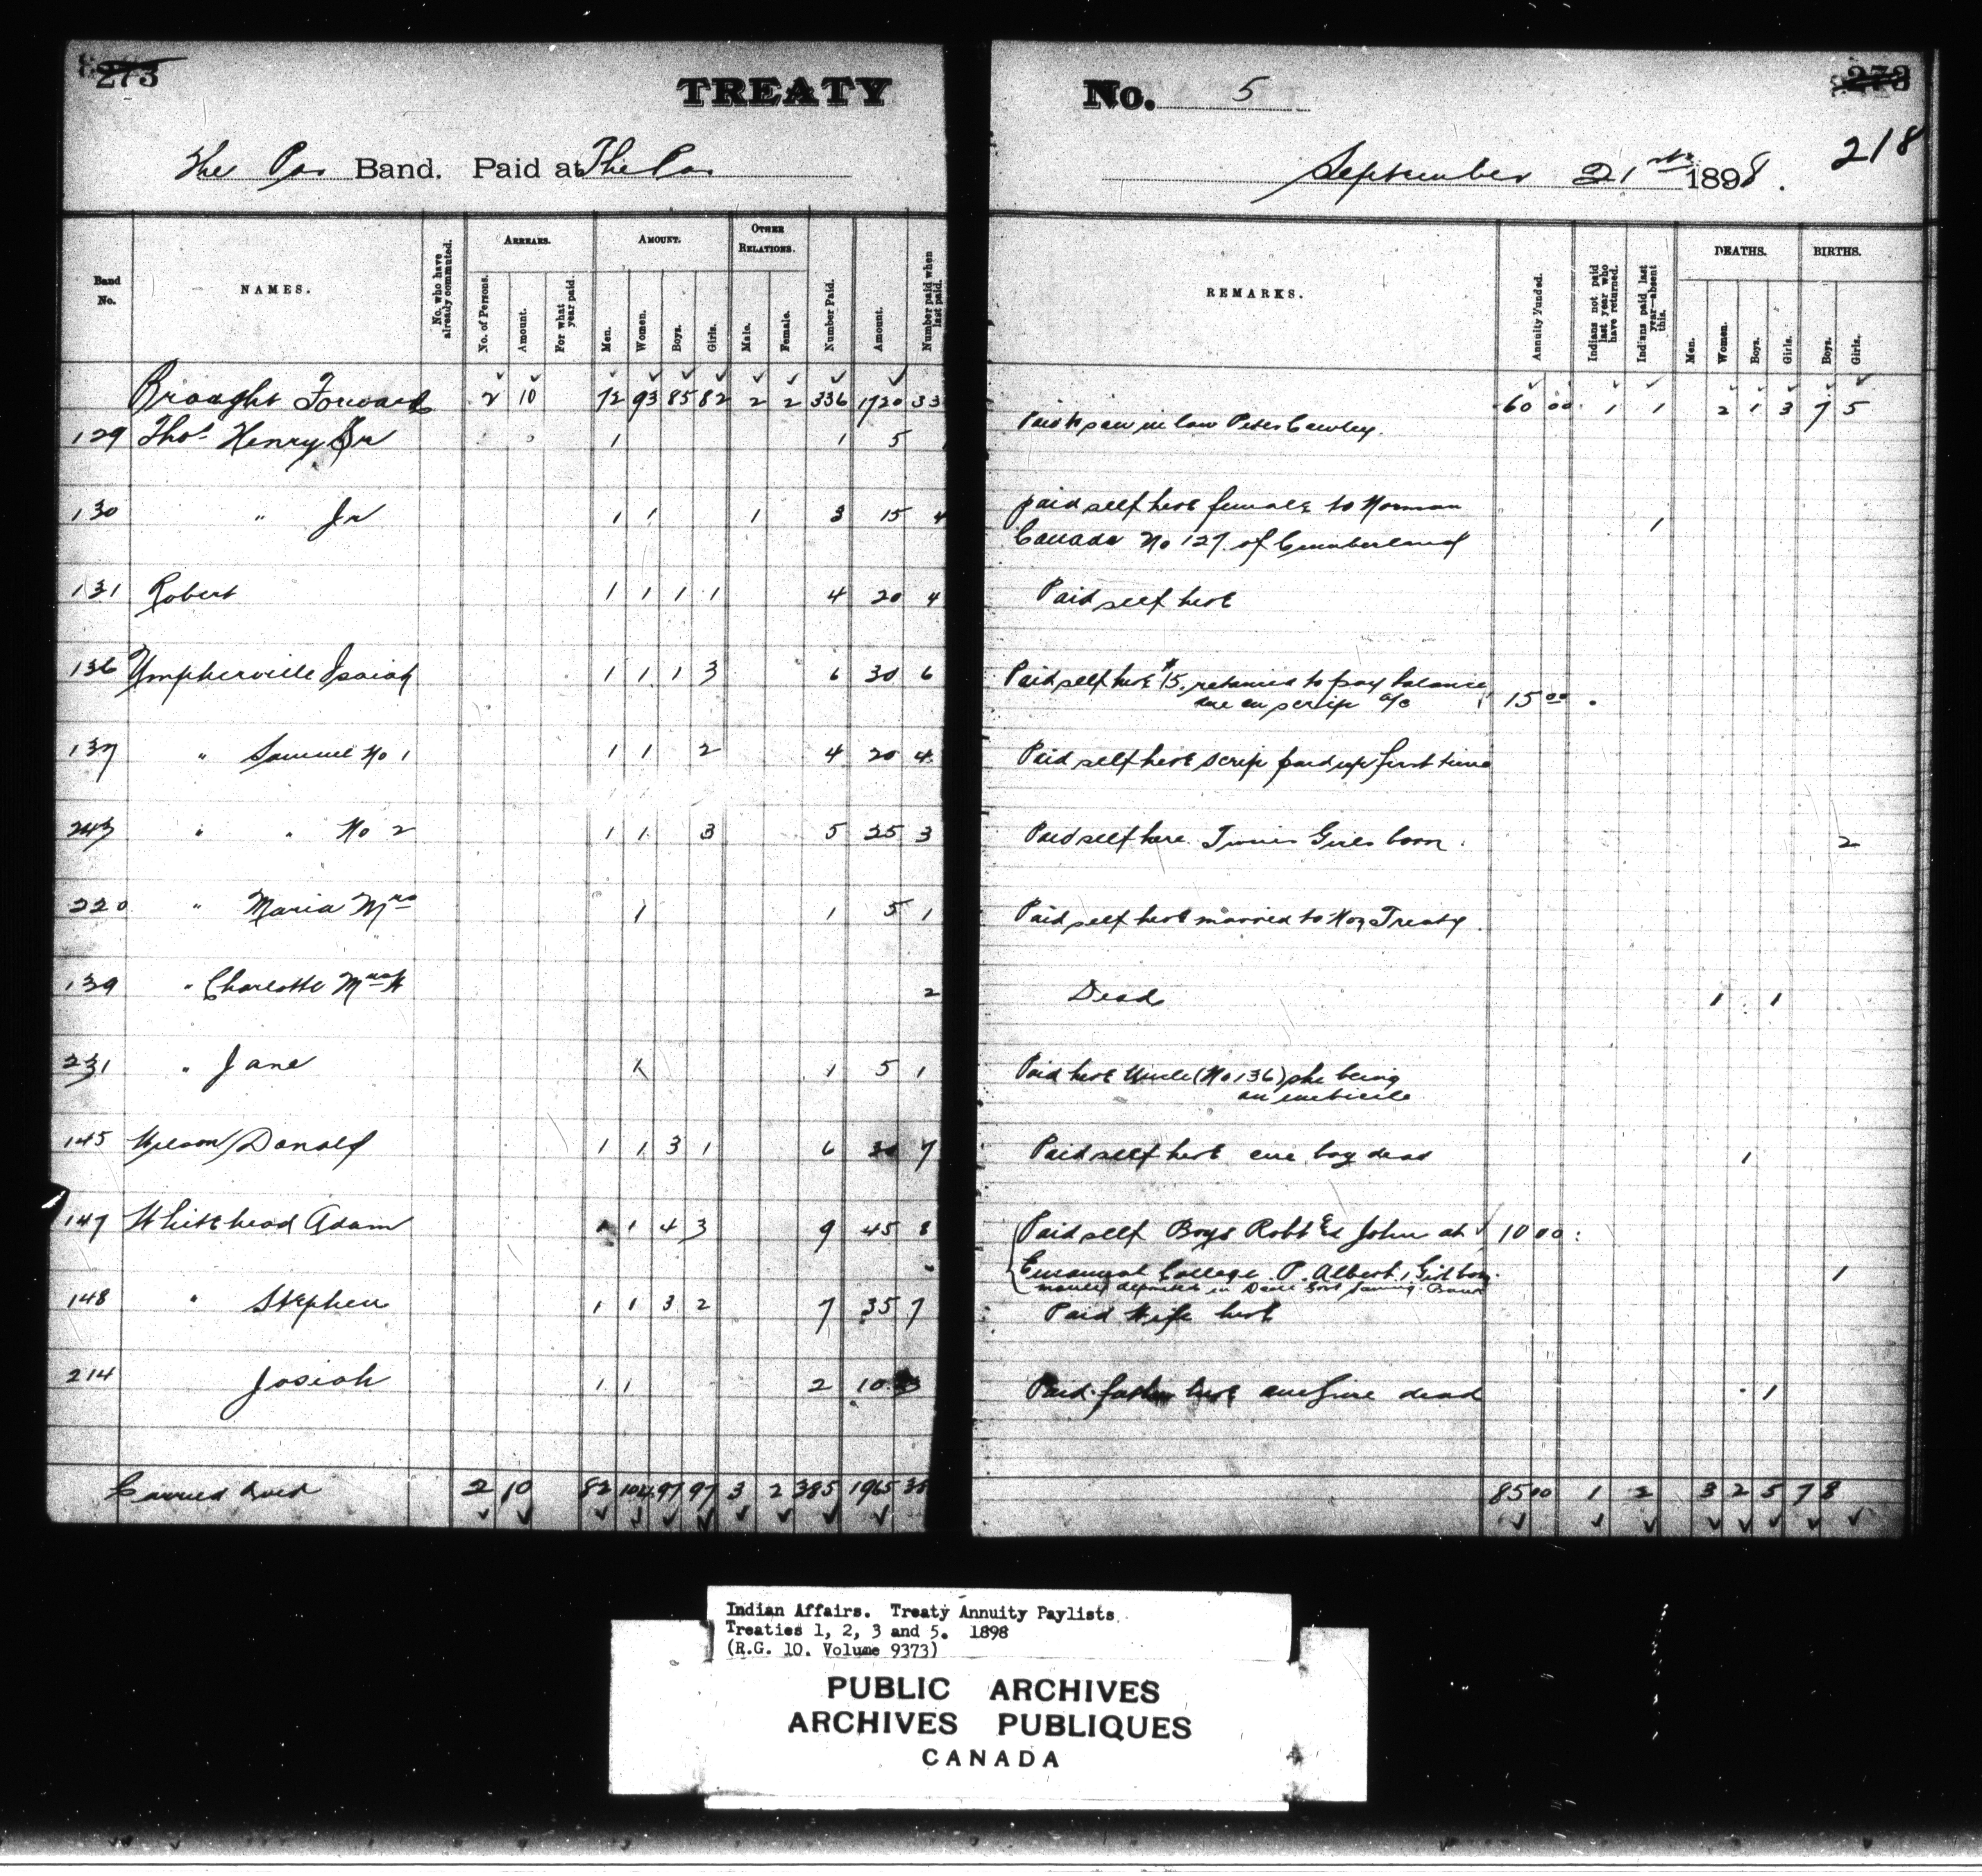 273
TREATY No. 5
273
218
The Pas Band. Paid at The Pas
September 21st 1898.
Band No.
NAMES.
No. who have already commuted.
ARREARS.
No. of Persons.
Amount.
For what year paid.
AMOUNT.
Men.
Women.
Boys.
Girls.
OTHER RELATIONS.
Male.
Female.
Number Paid.
Amount.
Number paid when last paid.
REMARKS.
Annuity Funded.
Indians not paid last year who have returned.
Indians paid last year—absent this.
DEATHS.
Men.
Women.
Boys.
Girls.
BIRTHS.
Boys.
Girls.
Brought Forward 2 10 72 93 85 82 2 2 336 1720 33 60 00 1 1 2 1 3 7 5
129 Thos. Henry Sr 1 1 5 Paid to son in law Peter Cawley.
130 " Jr 1 1 1 3 15 4 paid self here female to Norman 1
Canada No 127 of Cumberland
131 Robert 1 1 1 1 4 20 4 Paid self here
136 Umpherville Isaiah 1 1 1 3 6 30 6 Paid self here $15. retained to pay balance
due on scrip a/c 15 00
137 " Samuel No 1 1 1 2 4 20 4 Paid self here scrip paid up first time
243 " " No 2 1 1 3 5 25 3 Paid self here. Twins Girls born. 2
220 " Maria Mrs 1 1 5 1 Paid self here married to Non Treaty.
139 " Charlotte Mrs W 2 Dead 1 1
231 " Jane 1 1 5 1 Paid here Uncle (No 136) she being
an imbecile
145 Wilson Donald 1 1 3 1 6 30 7 Paid self here one boy dead 1
147 Whitehead Adam 1 1 4 3 9 45 8 Paid self Boys Robt & John at 10 00
Emanuel College P. Albert, 1 Girl born. 1
money deposited in Govt Saving Bank
148 " Stephen 1 1 3 2 7 35 7 Paid Wife here
214 Josiah 1 1 2 10 3 Paid father here one dead 1
Carried Over 2 10 82 104 97 97 3 2 385 1965 38 85 00 1 2 3 2 5 7 8
Indian Affairs. Treaty Annuity Paylists.
Treaties 1, 2, 3 and 5. 1898
(R.G. 10. Volume 9373)
PUBLIC ARCHIVES
ARCHIVES PUBLIQUES
CANADA